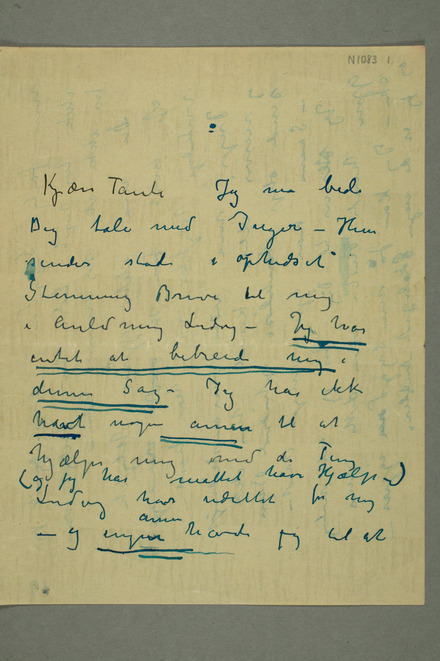 N1083 1
Kjære Tante Jeg må bede
Dig tale med Inger – Hun
sender stadi i ophidset
Stemning Breve til mig
i Anledning Ludvig – Jeg har
intet at bebreide mig i
denne Sag – Jeg har ikke
havt nogen annen til at
hjælpe mig med de Ting
(og jeg har måttet have Hjælp –)
Ludvig har udrettet for mig
– og ingen annen havde jeg til at